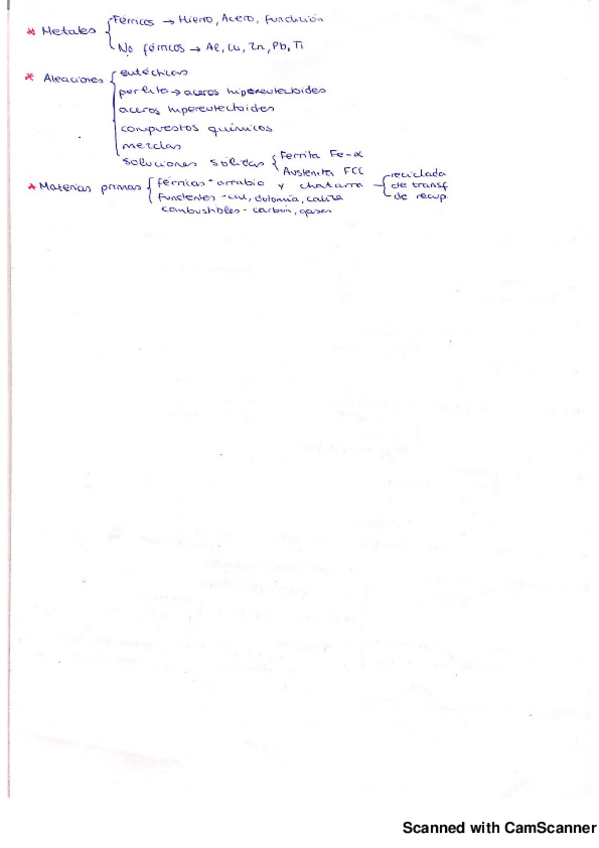 * Metales { Férricos → Hierro, Acero, Fundición
No férricos → Al, Cu, Zn, Pb, Ti
* Aleaciones { eutéchicas
perlita → aceros hipereutectoides
aceros hipereutectoides
compuestos químicos
mezclas
soluciones solidas { Ferrita Fe-α
Austenita FCC
* Materias primas { férricas - arrabio y chatarra { reciclada
de transf
de recup.
Fundentes - cal, dolomía, caliza
combustibles - carbón, gases
Scanned with CamScanner